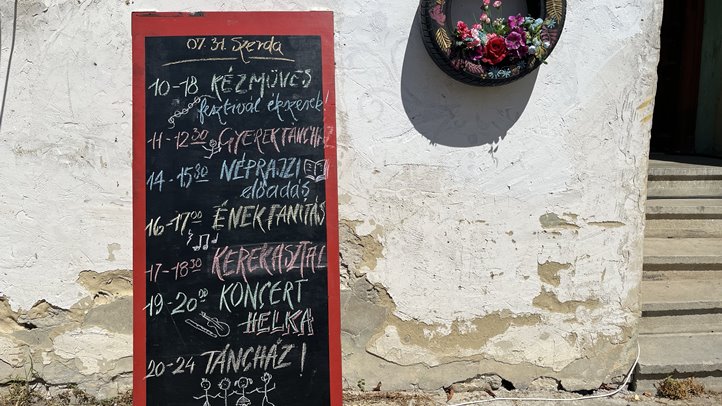 07. 31. Szerda
10-18 KÉZMŰVES
fesztivál ékszerek!
11-12³⁰ GYEREKTÁNCHÁZ
14-15³⁰ NÉPRAJZI
előadás
16-17⁰⁰ ÉNEKTANÍTÁS
17-18³⁰ KEREKASZTAL
19-20⁰⁰ KONCERT
HELKA
20-24 TÁNCHÁZ!